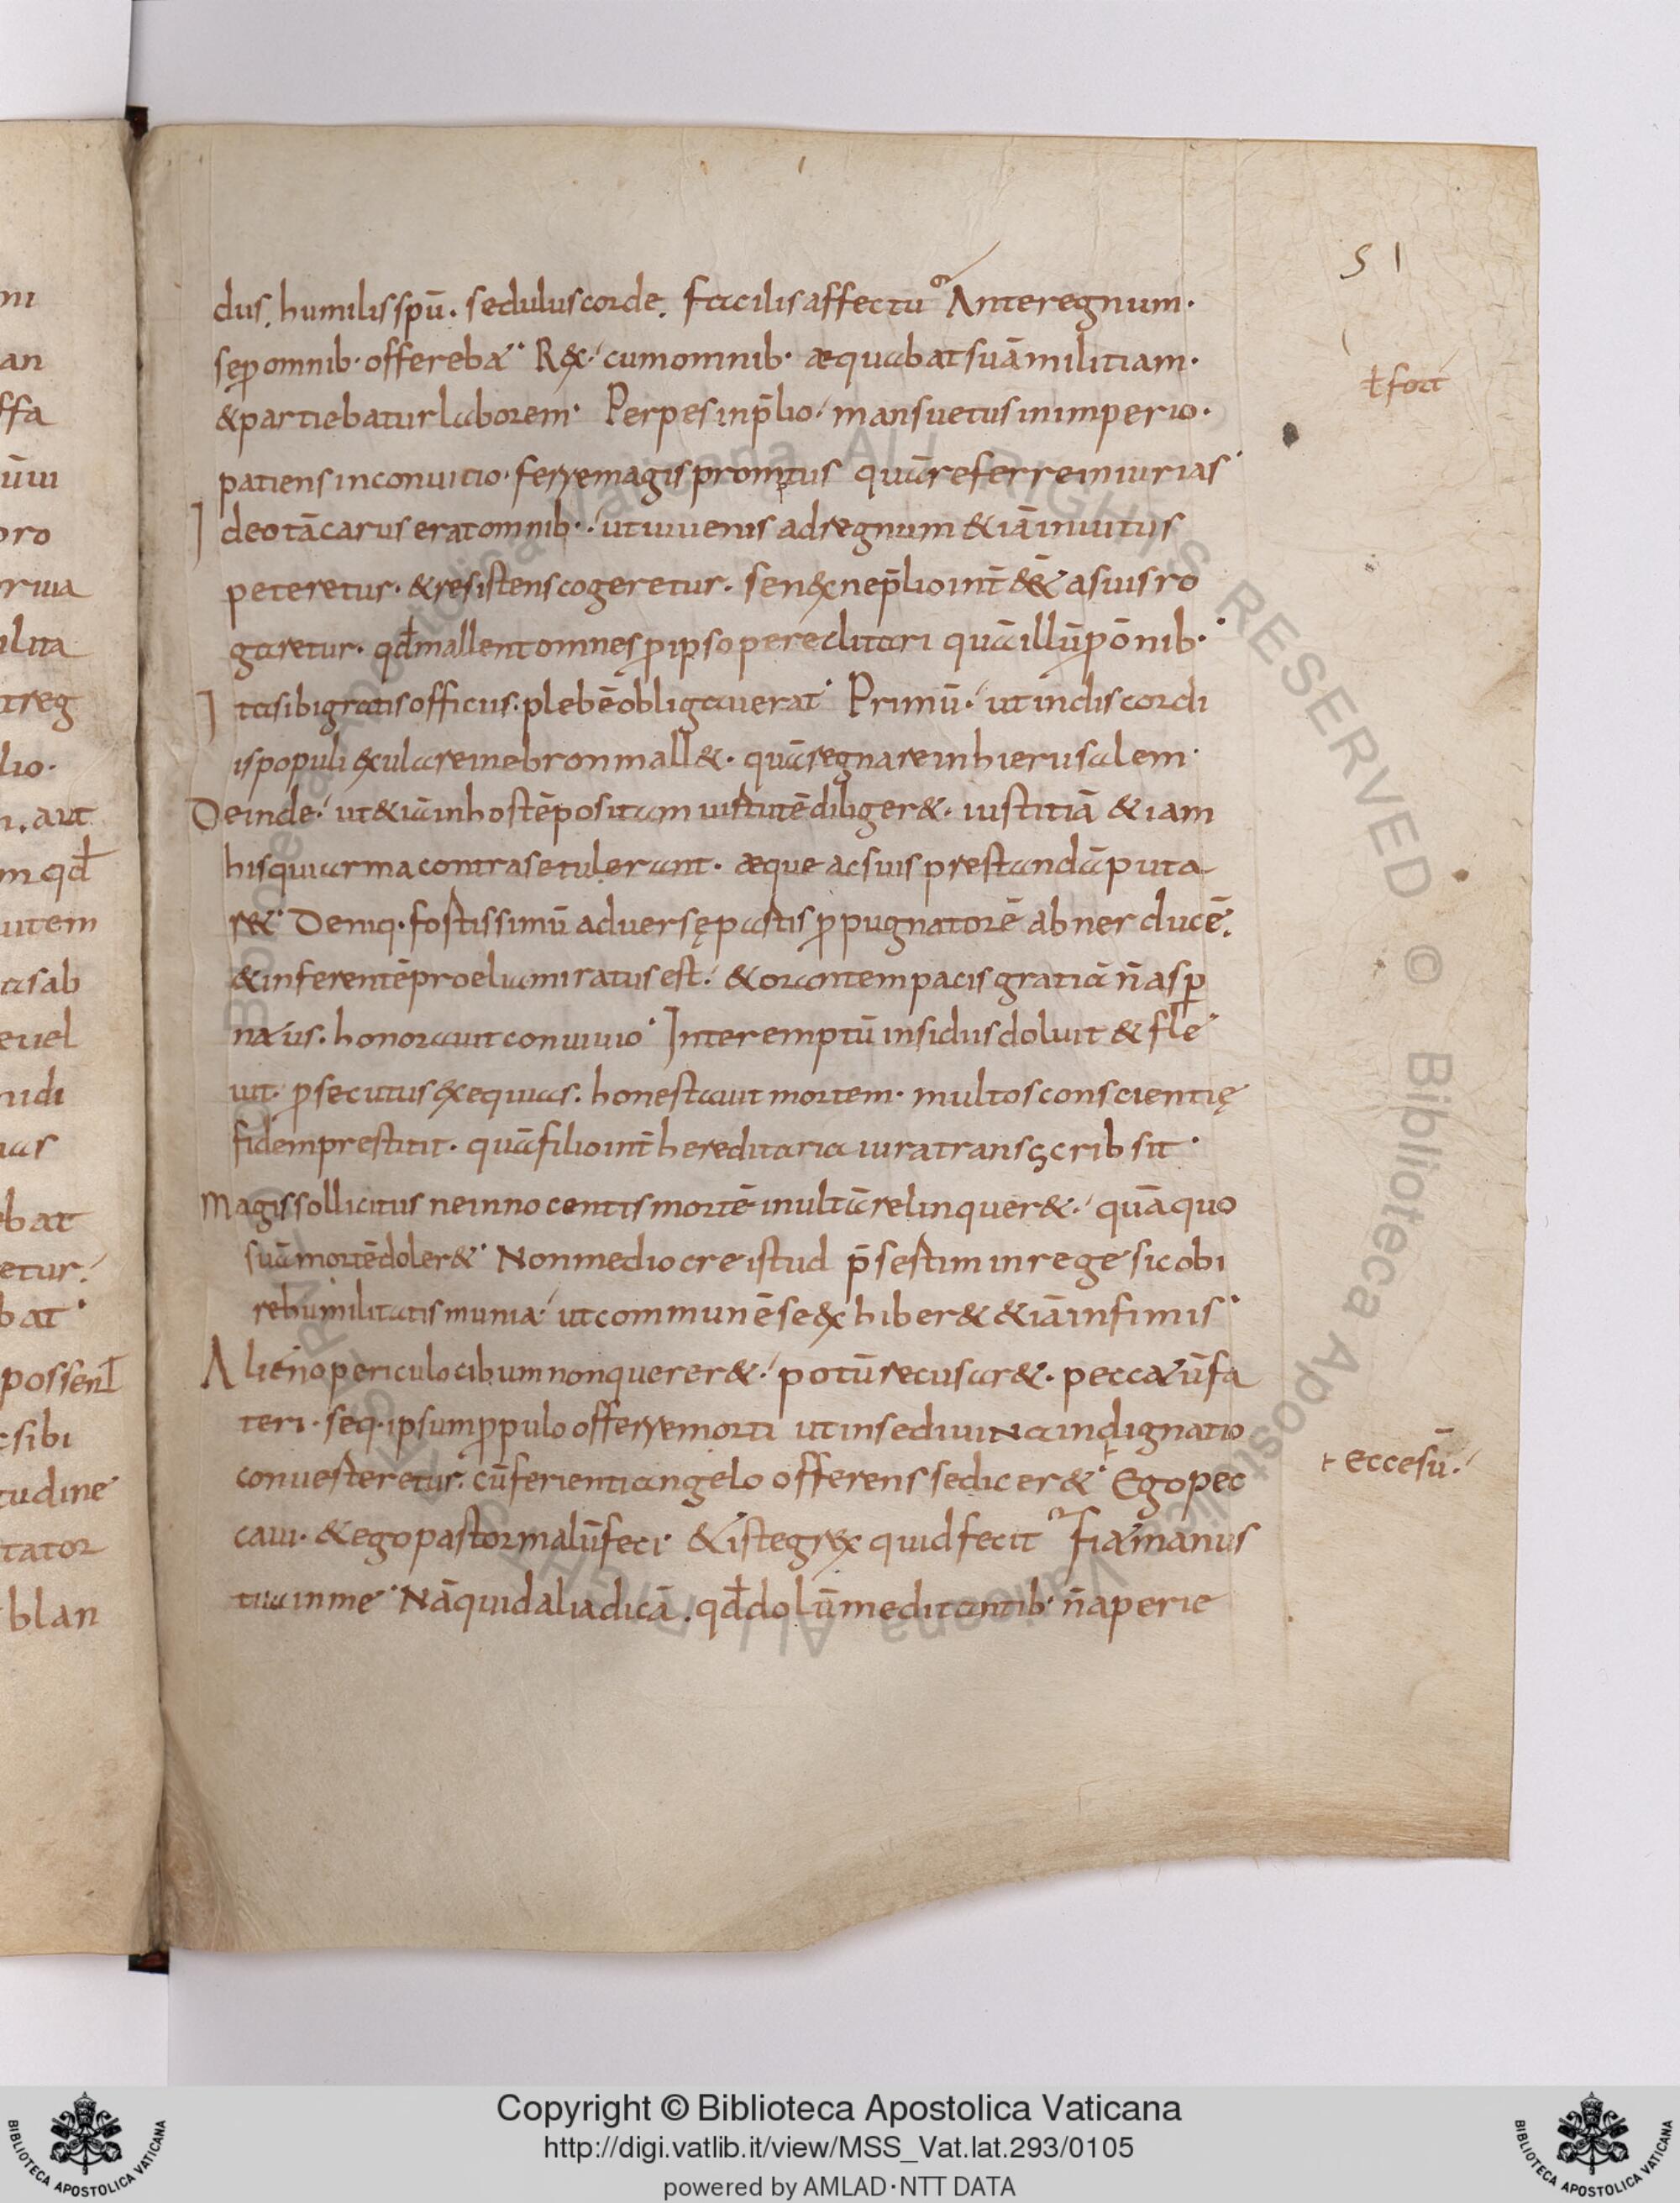 51
dus. humilis spū. sedulus corde. facilis affectu? Ante regnum.
sep omnib. offerebat. Rex. cum omnib. æquabat suā militiam.
ł fort
& partiebatur laborem. Perpes in p̄lio. mansuetus in imperio.
patiens in conuitio. ferre magis promtus quā referre iniurias.
Ideo tā carus erat omnib. ut iuuenis ad regnum &iā inuitus
peteretur. & resistens cogeretur. senex ne p̄lio int̄ &ēēt a suis ro
garetur. qđ mallent omnes p ipso pereclitari quā illū p ōnib.
Ita sibi gratis officiis. plebē obligauerat. Primū. ut in discordi
is populi exulare in ebron mall&. quā regnare in hierusalem.
Deinde. ut &iā in hostē positam uirtutē diliger&. iustitiā &iam
his qui arma contra se tulerant. æque ac suis prestandā puta
r&. Deniq. fortissimū aduersę partis ppugnatorē abner ducē.
& inferentē proelia miratus est. & orantem pacis gratiā n̄ asp
natus. honorauit conuiuio. Interemptū insidiis doluit & fle
uit. psecutus exequias. honestauit mortem. multos conscientię
fidem prestitit. quā filio int̄ hereditaria iura transscribsit.
Magis sollicitus ne innocentis mortē inultā relinquer&. quā quo
suā mortē doler&. Non mediocre istud p̄sertim in rege sic obi
re humilitatis munia. ut communē se exhiber& &iā infimis.
Alieno periculo cibum non querer&. potū recusar&. peccatū fa
teri. seq. ipsum p pulo offerre morti ut in se diuina indignatio
conuerteretur. cū ferienti angelo offerens se dicer&. Ego pec
⊢ ecce sū.
caui. & ego pastor malū feci. & iste grex quid fecit? Fiat manus
tua in me. Nā quid alia dicā. qđ dolū meditantib. n̄ aperie
Copyright © Biblioteca Apostolica Vaticana
http://digi.vatlib.it/view/MSS_Vat.lat.293/0105
powered by AMLAD·NTT DATA
BIBLIOTECA APOSTOLICA VATICANA
BIBLIOTECA APOSTOLICA VATICANA